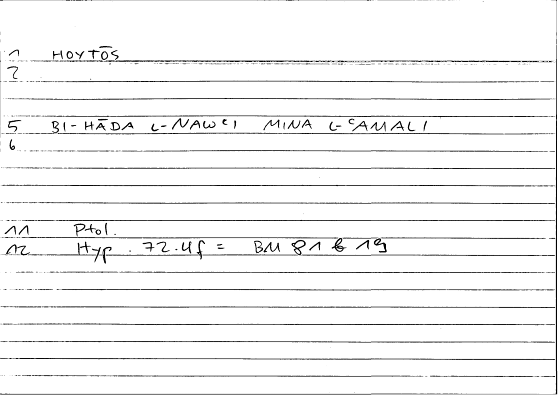 1 HOYTŌS
2
5 BI-HĀDA L-NAWʿI MINA L-ʿAMALI
6
11 Ptol.
12 Hyp. 72.4f = BM 81 b 19